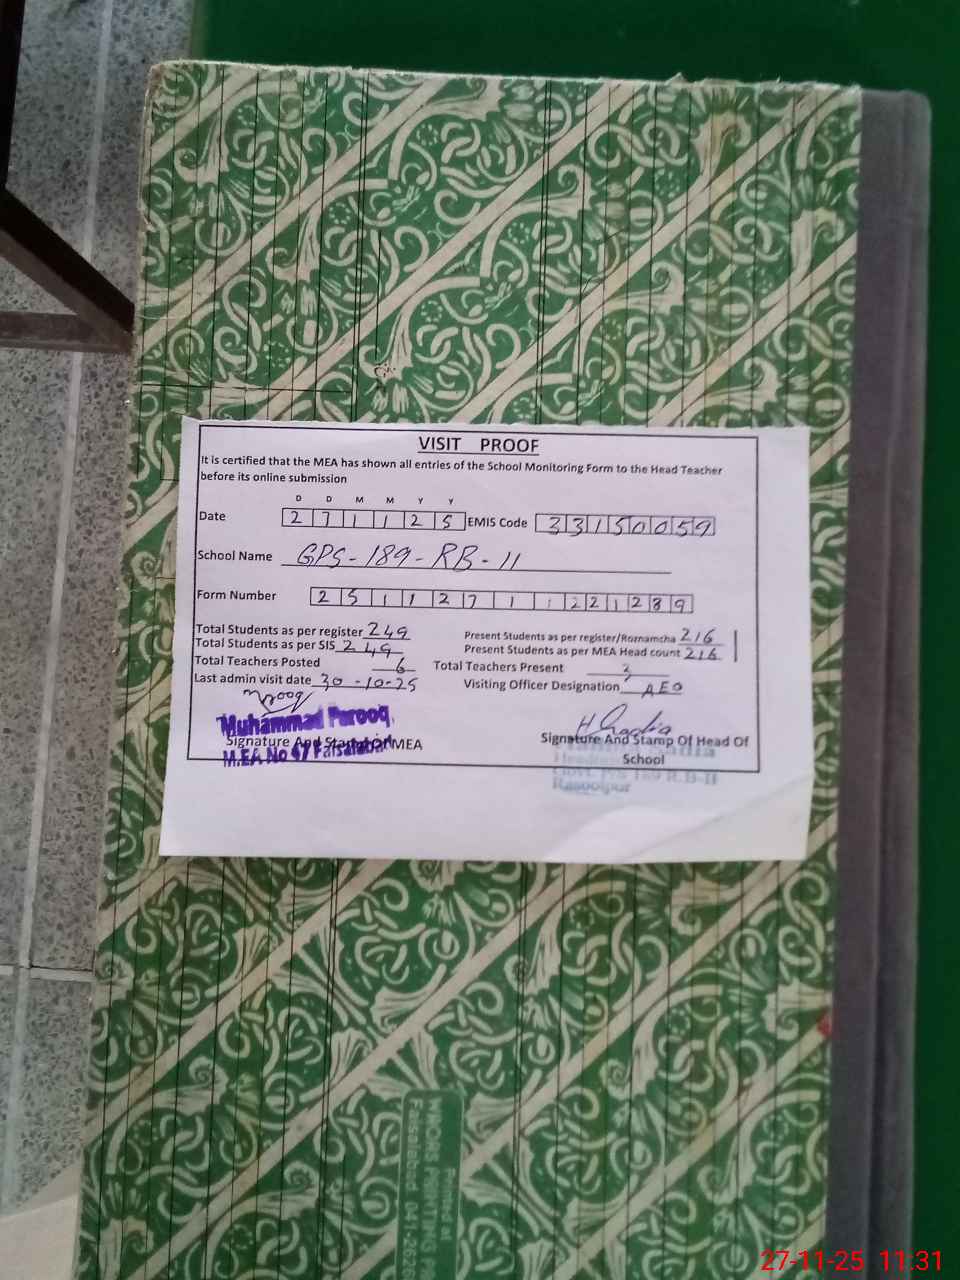 VISIT PROOF
It is certified that the MEA has shown all entries of the School Monitoring Form to the Head Teacher
before its online submission
D D M M Y Y
Date 2 7 1 1 2 5 EMIS Code 3 3 1 5 0 0 5 9
School Name GPS-189-RB-11
Form Number 2 5 1 1 2 7 1 1 2 2 1 2 8 9
Total Students as per register 249 Present Students as per register/Roznamcha 216
Total Students as per SIS 249 Present Students as per MEA Head count 216
Total Teachers Posted 6 Total Teachers Present
Last admin visit date 30-10-25 Visiting Officer Designation AEO
Farooq
Muhammad Farooq
Signature And Stamp Of MEA Signature And Stamp Of Head Of
M.EA No 47 Faisalabad School
Govt. P/S 189 R.B-II
Rasoolpur
Printed at
Faisalabad 041-262
27-11-25 11.31